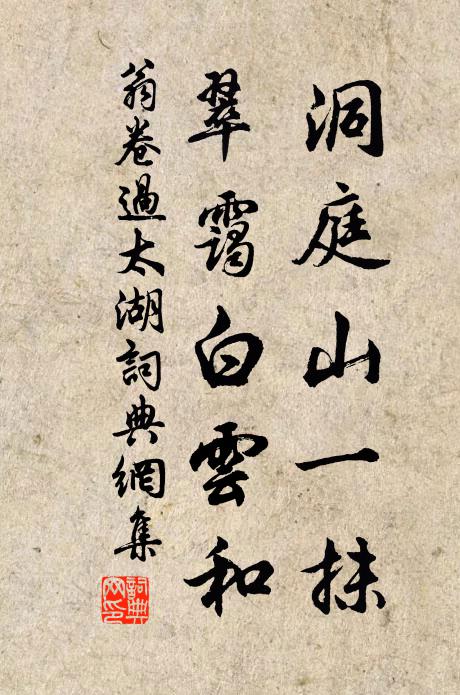 洞庭山一抹
翠靄白雲和
翁卷過太湖詞典網集
詞典
網印